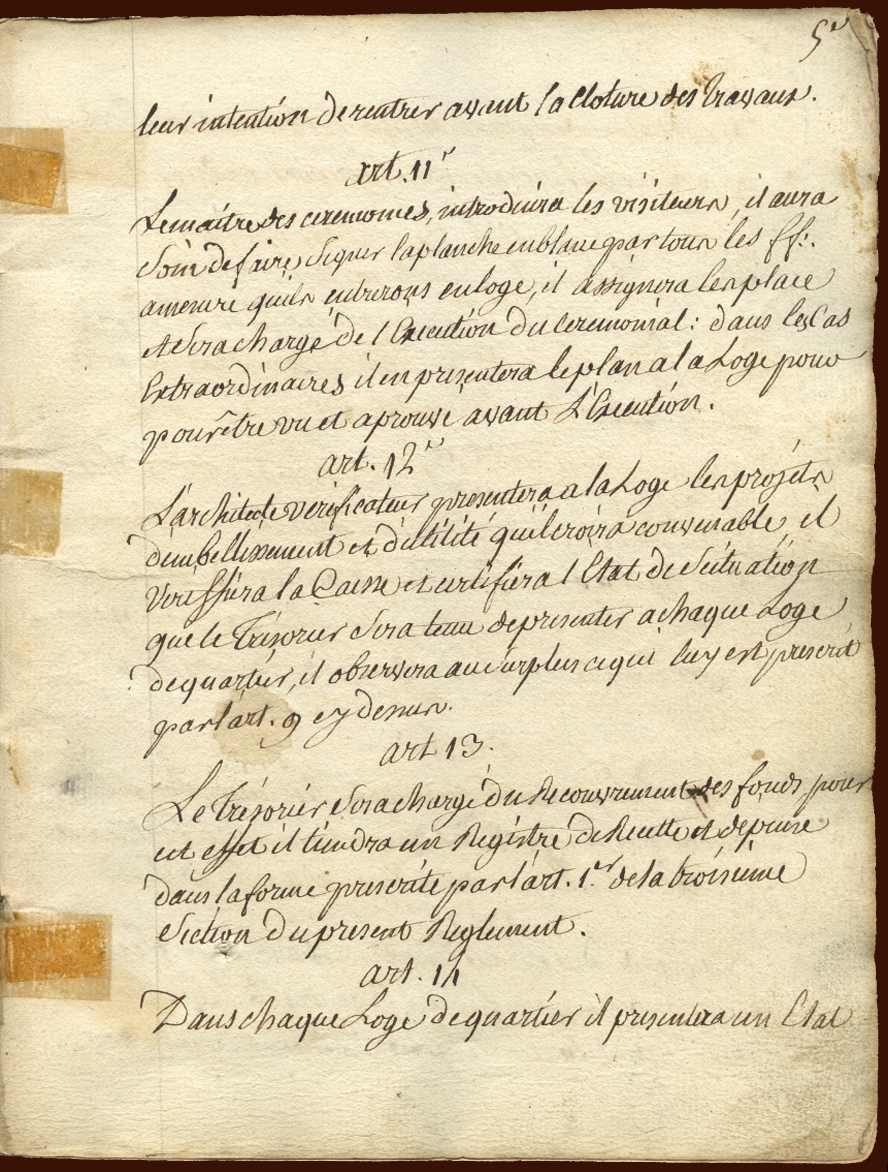 5e
leur intention de rentrer avant la Cloture des travaux.
art. 11e
Le maitre des ceremonies, introduira les visiteurs, il aura
Soin de faire Signer la planche en blanc par tous les ff∴
amesure quils entrerons en loge, il assignera les place
et Sera chargé de l'Execution du Ceremonial: dans les Cas
Extraordinaires il en presentera le plan a la Loge pour
pour être vu et aprouvé avant L'Execution.
art. 12e
L'architecte vérificateur presentera a la Loge les projets
d'embellissement et d'utilité qu'il croira convenable, il
Veriffiera la Caisse et certifiera l'Etat de Scituation
que le Trésorier Sera tenu de presenter a chaque Loge
de quartier, il observera au surplus ce qui luy est prescrit
par l'art. 9 cy dessus.
art 13.
Le Trésorier Sera chargé du Recouvrement des fonds, pour
cet effet il tiendra un Registre de Recette et depense
dans la forme prescrite par l'art. 1.er de la troisieme
Section du present Reglement.
art. 14
Dans chaque Loge de quartier il presentera un Etat